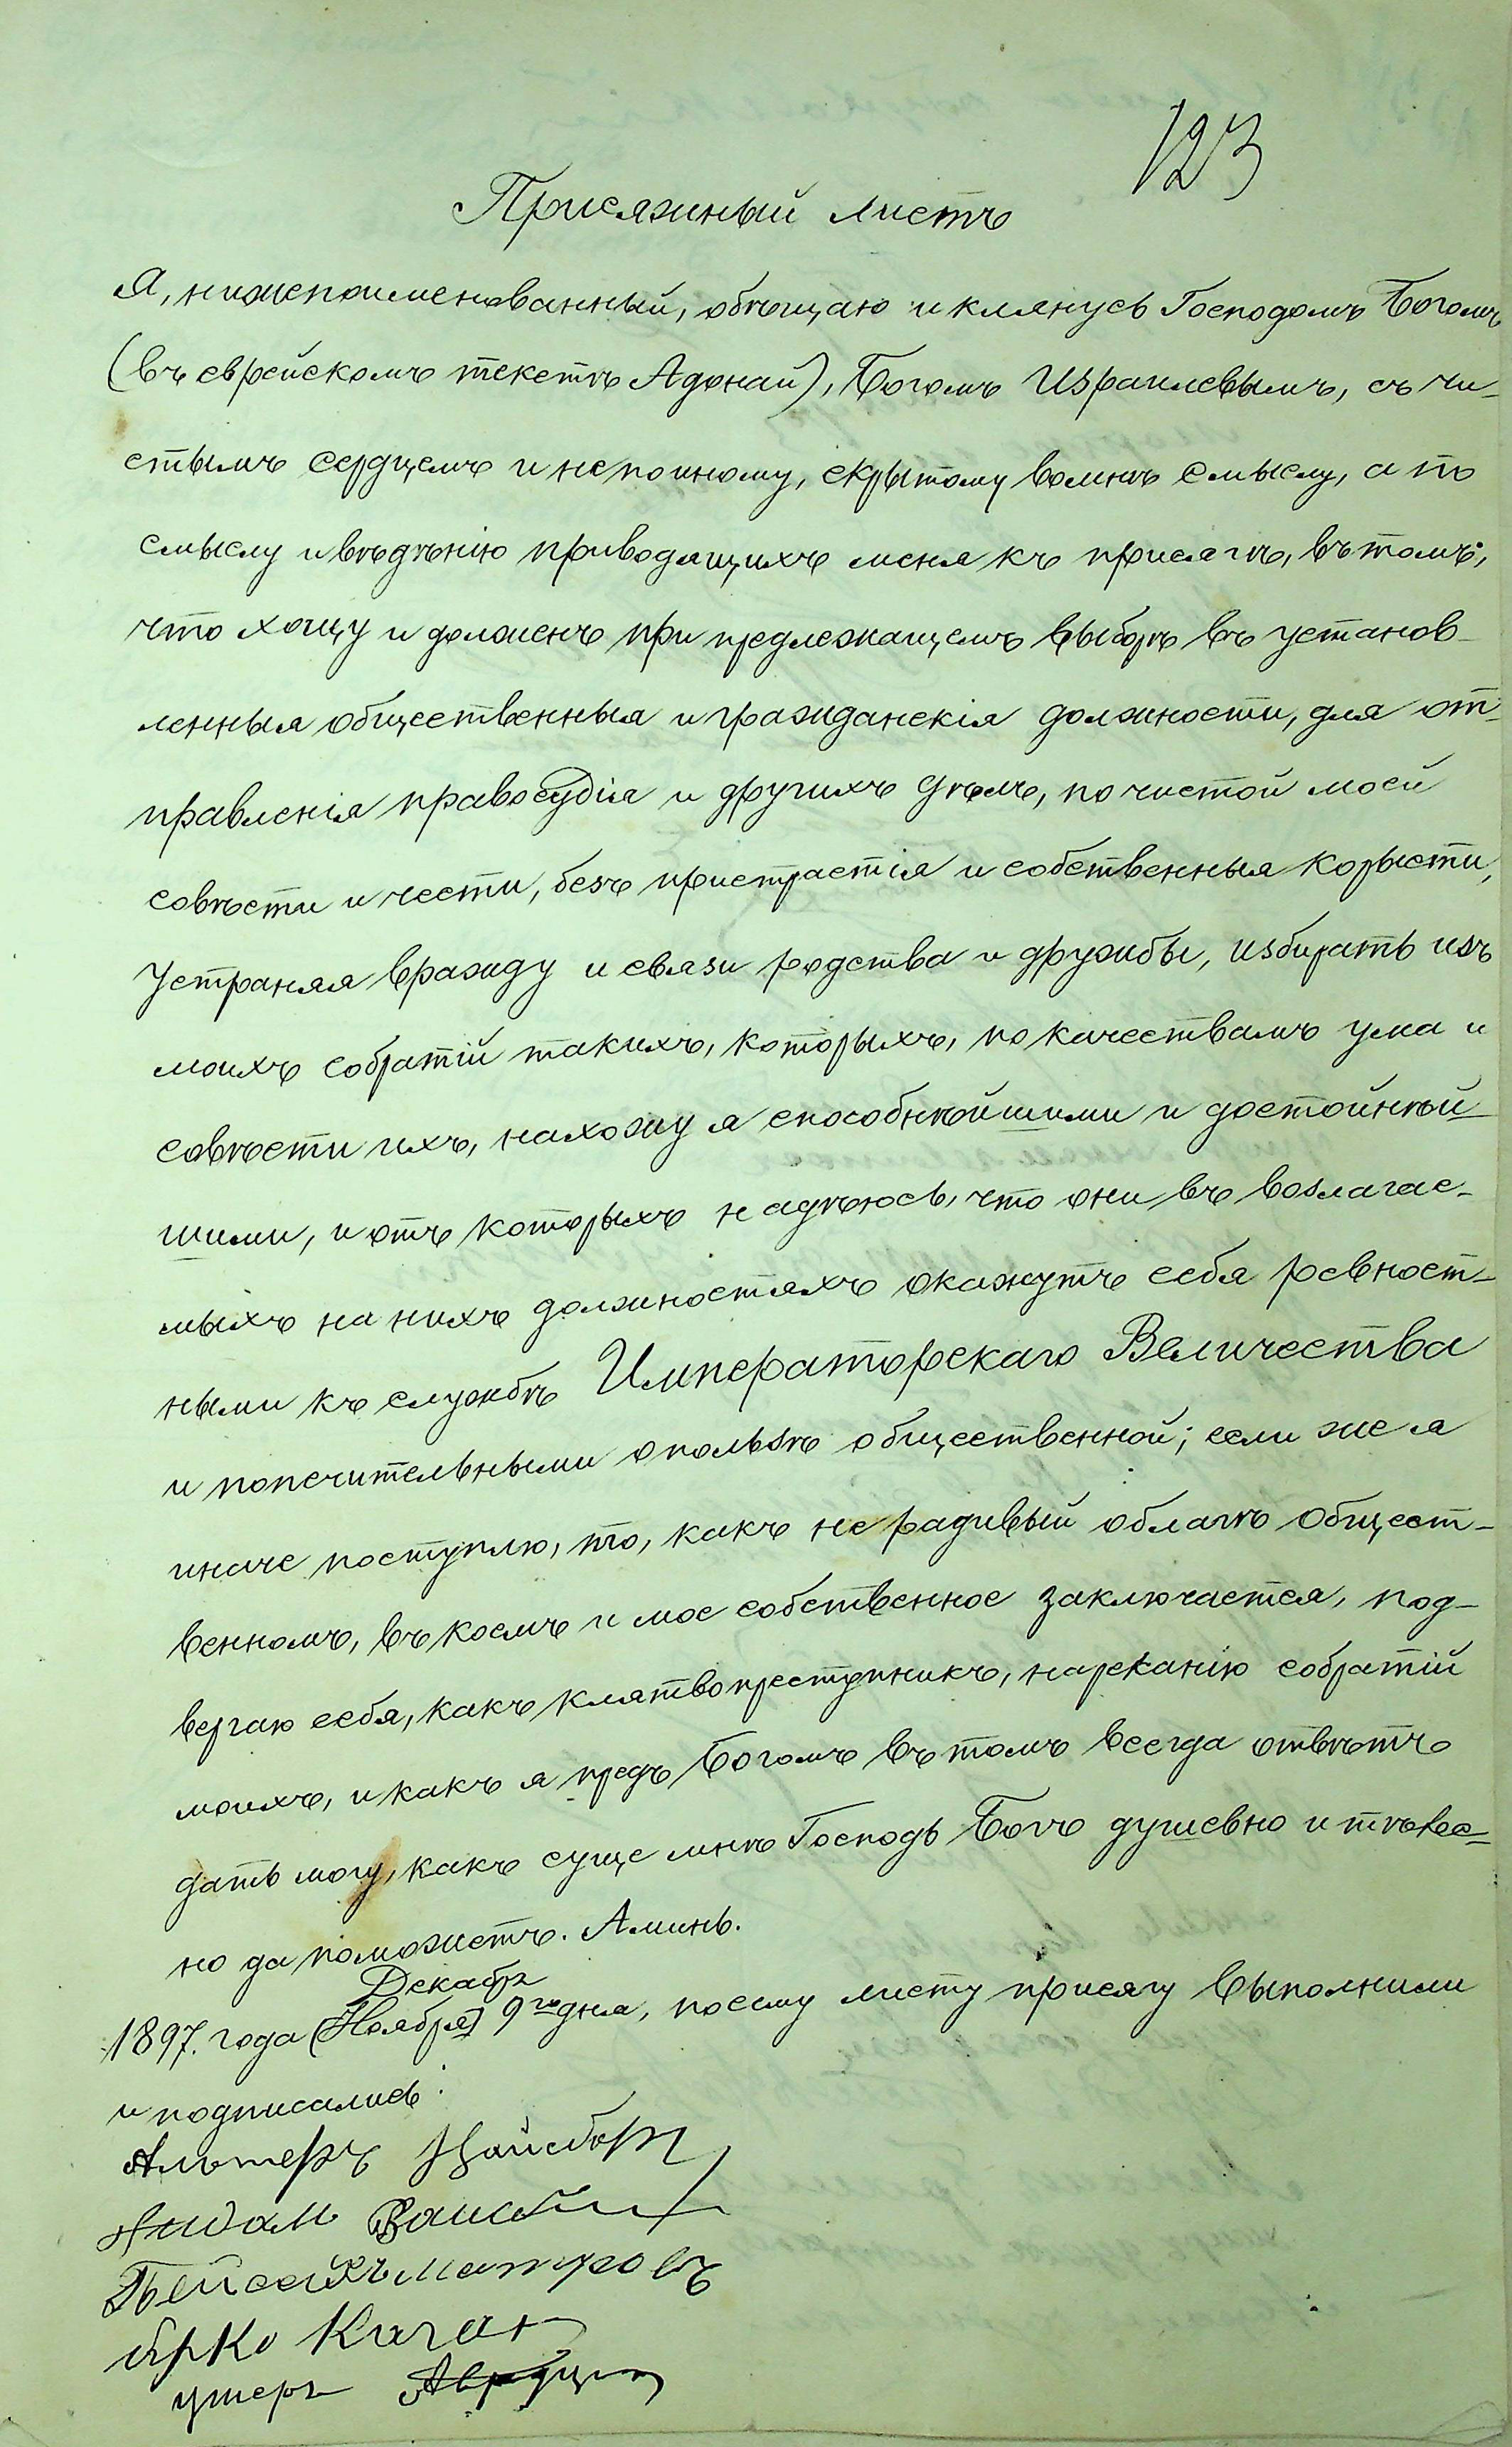 123
Присяжный листъ
Я, нижепоименованный, обѣщаю и клянусь Господомъ Богомъ
(въ еврейскомъ текстѣ Адонай), Богомъ Израилевымъ, съ чи-
стымъ сердцемъ и не по иному, скрытому во мнѣ смыслу, а по
смыслу и вѣдѣнію приводящихъ меня къ присягѣ, въ томъ,
что хощу и долженъ при предлежащемъ выборѣ въ установ-
ленныя общественныя и гражданскія должности, для от-
правленія правосудія и другихъ дѣлъ, по чистой моей
совѣсти и чести, безъ пристрастія и собственныя корысти,
устраняя вражду и связи родства и дружбы, избирать изъ
моихъ собратій такихъ, которыхъ, по качествамъ ума и
совѣсти ихъ, нахожу я способнѣйшими и достойнѣй-
шими, и отъ которыхъ надѣюсь, что они въ возлагае-
мыхъ на нихъ должностяхъ окажутъ себя ревност-
ными къ службѣ Императорскаго Величества
и попечительными о пользѣ общественной; если же я
иначе поступлю, то, какъ нерадивый о благѣ общест-
венномъ, въ коемъ и мое собственное заключается, под-
вергаю себя, какъ клятвопреступникъ, нареканію собратій
моихъ, и какъ я предъ Богомъ въ томъ всегда отвѣтъ
дать могу, какъ суще мнѣ Господь Богъ душевно и тѣлес-
но да поможетъ. Аминь.
Декабря
1897. года (Ноября) 9го дня, по сему листу присягу выполнили
и подписались:
Альтеръ
Бейсахъ Матровъ
Ирко Каган